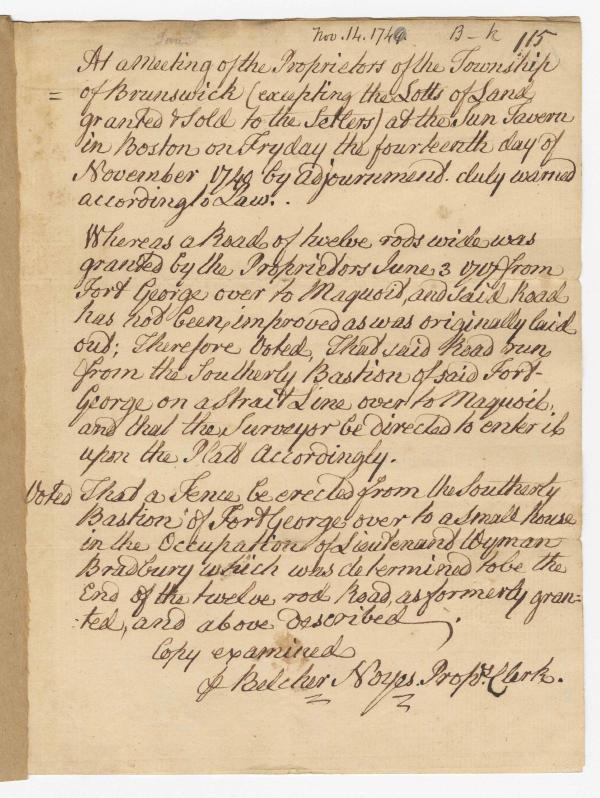 Nov. 14. 1749 B-k 115
At a Meeting of the Proprietors of the Township
of Brunswick (excepting the Lotts of Land
granted & Sold to the Setlers) at the Sun Tavern
in Boston on Fryday the fourteenth day of
November 1740 by adjournment duly warned
according to Law.
Whereas a Road of twelve rods wide was
granted by the Proprietors June 3 1717 from
Fort George over to Maquoit, and said Road
has not been improved as was originally laid
out; Therefore Voted, That said Road run
from the Southerly Bastion of said Fort
George on a Strait Line over to Maquoit,
and that the Surveyor be directed to enter it
upon the Platt Accordingly.
Voted That a Fence be erected from the Southerly
Bastion of Fort George over to a Small house
in the Occupation of Lieutenant Wyman
Bradbury which was determined to be the
End of the twelve rod Road, as formerly gran-
-ted, and above described
Copy examined
Belcher Noyes. Prop.rs Clerk.